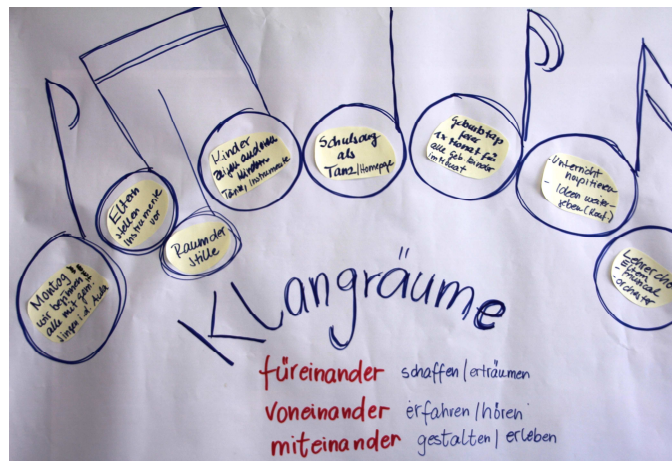 Montag
wir beginnen
alle mit gem.
Singen i. d. Aula
Eltern
stellen
Instrumente
vor
Raum der
Stille
Kinder
zeigen anderen
Kindern
Tänze, Instrumente
Schulsong
als
Tanz/Homepage
Geburtstag
feier
1x Monat für
alle Geb. kinder
im Monat
- Unterricht
hospitieren
Ideen weiter-
geben
Lehrer cho
- Eltern
- musical
- orchester
Klangräume
füreinander schaffen/erträumen
voneinander erfahren/hören
miteinander gestalten/erleben